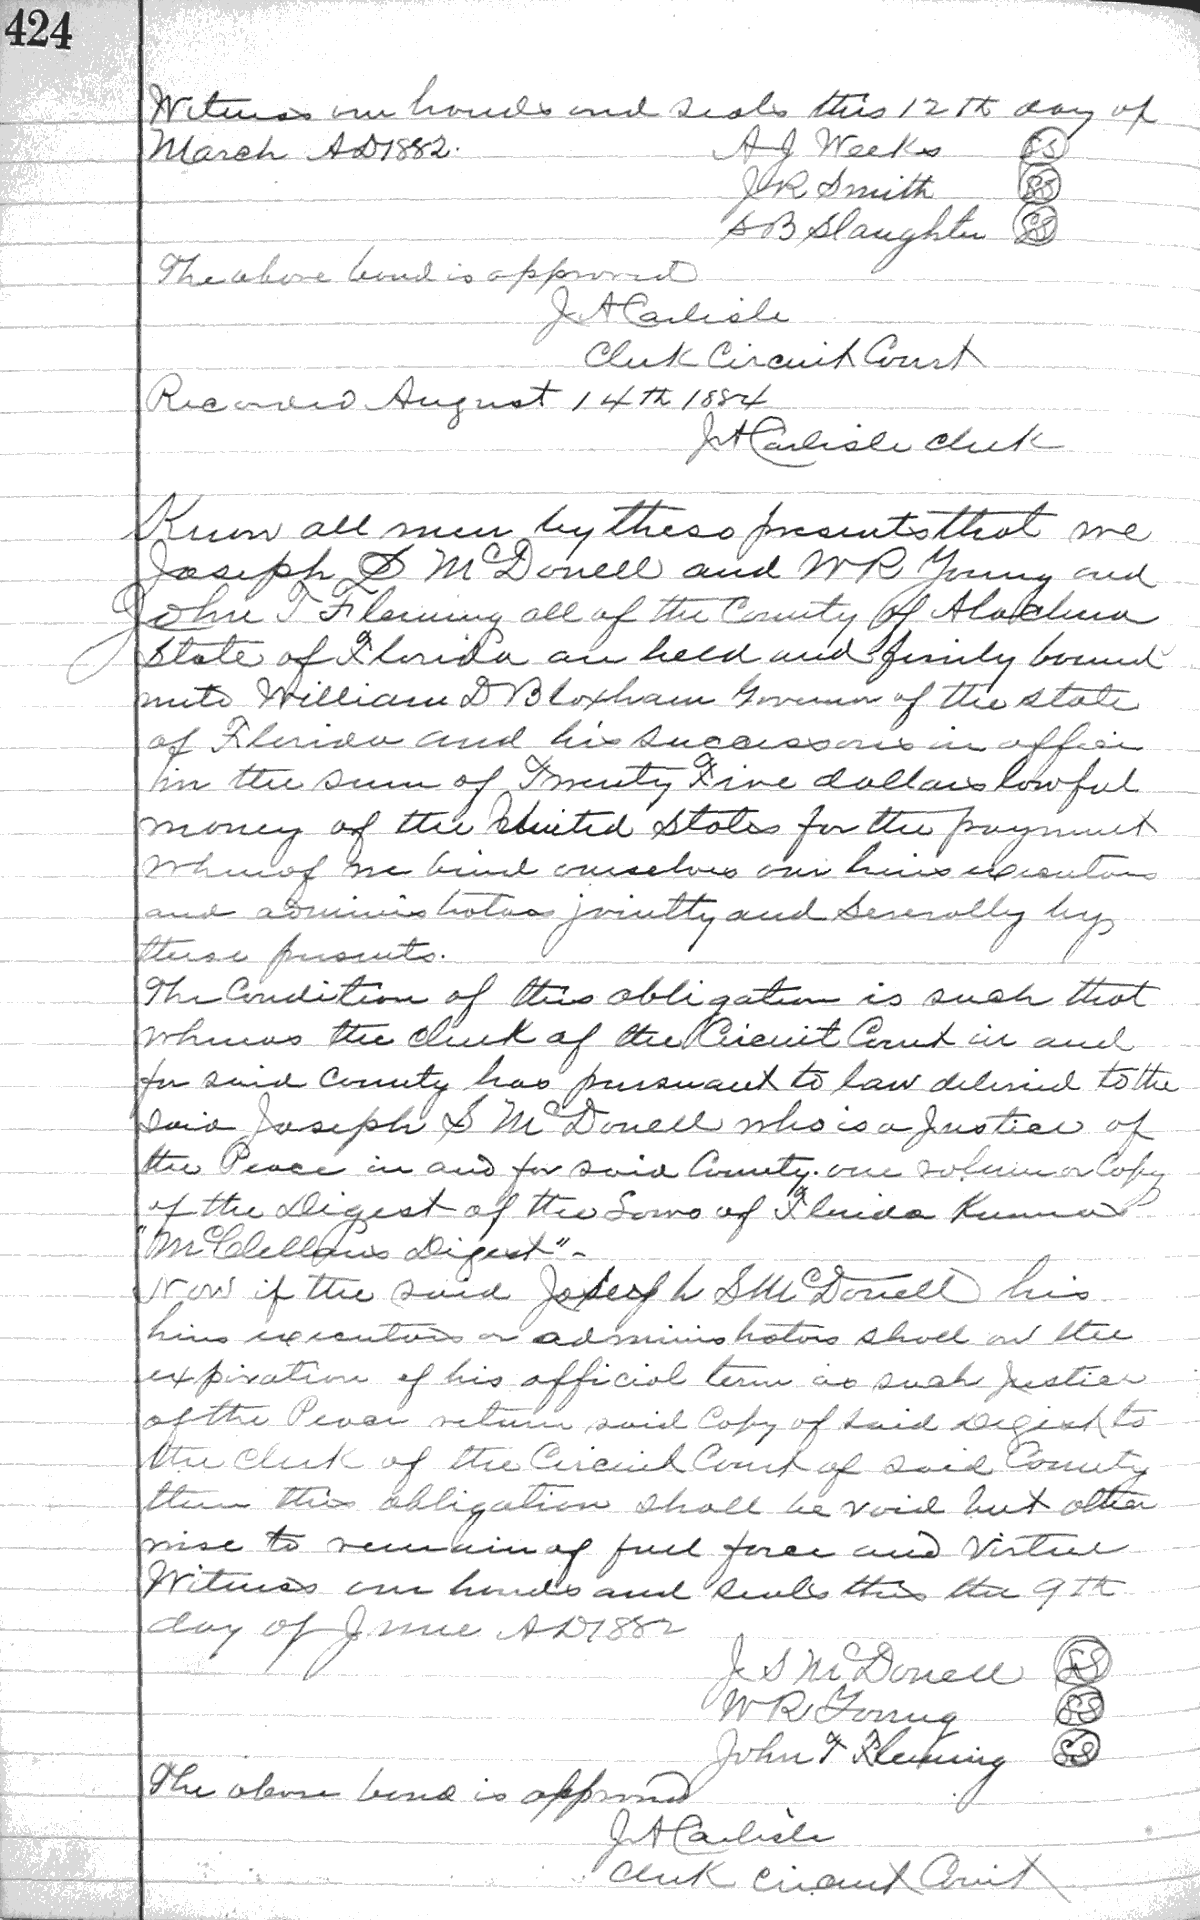 424
Witness our hands and seals this 12th day of
March AD 1882.
A J Weeks SS
J R Smith SS
S B Slaughter SS
The above bond is approved
J A Carlisle
Clerk Circuit Court
Recorded August 14th 1884
J A Carlisle Clerk
Know all men by these presents that we
Joseph S McDonell and W R Young and
John T Fleming all of the County of Alachua
State of Florida are held and firmly bound
unto William D Bloxham Governor of the State
of Florida and his successors in office
in the sum of Twenty Five dollars lawful
money of the United States for the payment
whereof we bind ourselves our heirs executors
and administrators jointly and Severally by
these presents.
The Condition of this obligation is such that
whereas the clerk of the Circuit Court in and
for said County has pursuant to law delivered to the
said Joseph S McDonell who is a Justice of
the Peace in and for said County. one volume or Copy
of the Digest of the Laws of Florida Known as
"McClellans Digest"-
Now if the said Joseph S McDonell his
heirs executors or administrators shall on the
expiration of his official term as such Justice
of the Peace return said Copy of said Digest to
the Clerk of the Circuit Court of said County
then this obligation shall be void but other
wise to remain of full force and Virtue
Witness our hands and seals this the 9th
day of June AD 1882
J S McDonell SS
W R Young SS
John T Fleming SS
The above bond is approved
J A Carlisle
Clerk Circuit Court